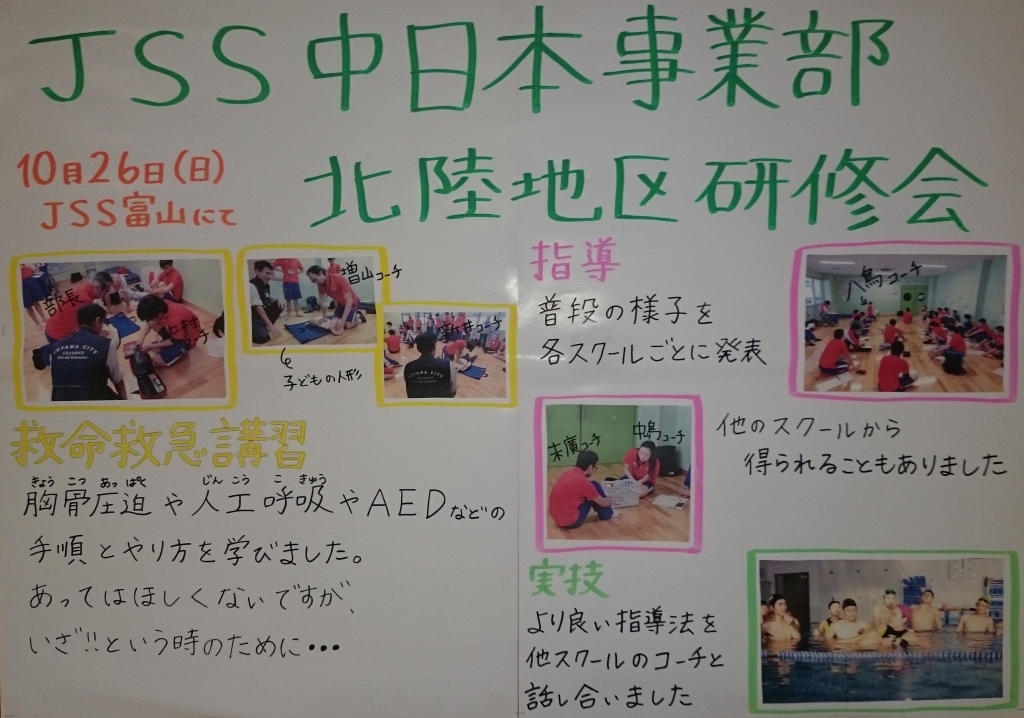 JSS中日本事業部
北陸地区研修会
10月26日(日)
JSS富山にて
部長
北村
コーチ
増山コーチ
子どもの人形
新井コーチ
救命救急講習
きょう こつ あっ ぱく じん こう こ きゅう
胸骨圧迫や人工呼吸やAEDなどの
手順とやり方を学びました。
あってはほしくないですが、
いざ!!という時のために・・・
指導
普段の様子を
各スクールごとに発表
八鳥コーチ
末廣コーチ
中嶋コーチ
他のスクールから
得られることもありました
実技
より良い指導法を
他スクールのコーチと
話し合いました